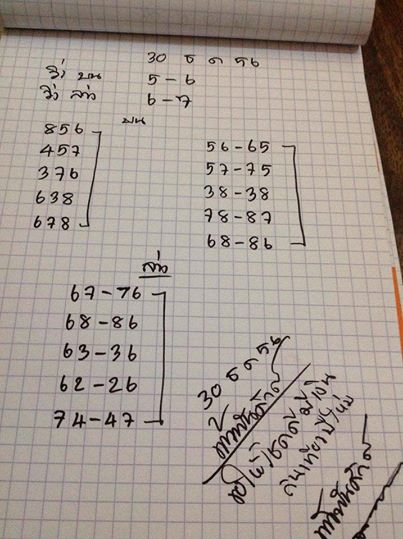 30 ธ ค 56
วิ่ง บน 5-6
วิ่ง ล่าง 6-7
บน
856
457
376
638
678
56-65
57-75
38-38
78-87
68-86
ล่าง
67-76
68-86
63-36
62-26
74-47
30 ธ ค 56
ขอให้โชคดีมีเงิน